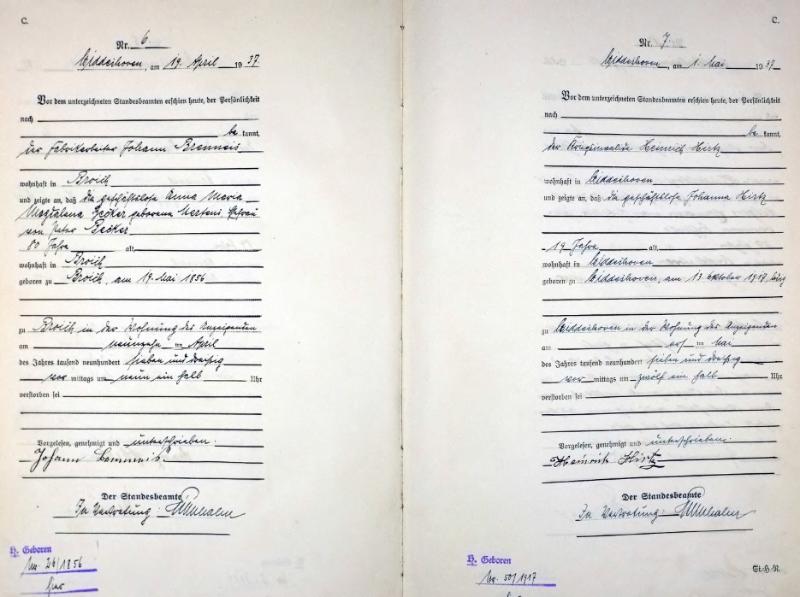 C.
Nr. 6
am 19. April 1937.
Vor dem unterzeichneten Standesbeamten erschien heute, der Persönlichkeit
nach
be kannt,
der Fabrikarbeiter Johann
wohnhaft in Broich
und zeigte an, daß die geschäftslose Anna Maria
Magdalena Becker geborene Mertens Ehefrau
von Peter Becker
80 Jahre alt,
wohnhaft in Broich
geboren zu Broich, am 19. Mai 1856
zu Broich in der Wohnung des Anzeigenden
am neunzehn ten April
des Jahres tausend neunhundert sieben und dreißig
vor mittags um neun ein halb Uhr
verstorben sei
Vorgelesen, genehmigt und unterschrieben.
Johann
Der Standesbeamte
In Vertretung:
H. Geboren
Nr. 26/1856
hier
C.
Nr. 7.
am 1. Mai 1937
Vor dem unterzeichneten Standesbeamten erschien heute, der Persönlichkeit
nach
be kannt,
der Kriegsinvalide Heinrich Hirtz
wohnhaft in
und zeigte an, daß die geschäftslose Johanna Hirtz
19 Jahre alt,
wohnhaft in
geboren zu am 13. Oktober 1917
zu in der Wohnung des Anzeigenden
am ers ten Mai
des Jahres tausend neunhundert sieben und dreißig
vor mittags um zwölf ein halb Uhr
verstorben sei
Vorgelesen, genehmigt und unterschrieben.
Heinrich Hirtz
Der Standesbeamte
In Vertretung:
H. Geboren
Nr. 50/1917
St.-H.-R.